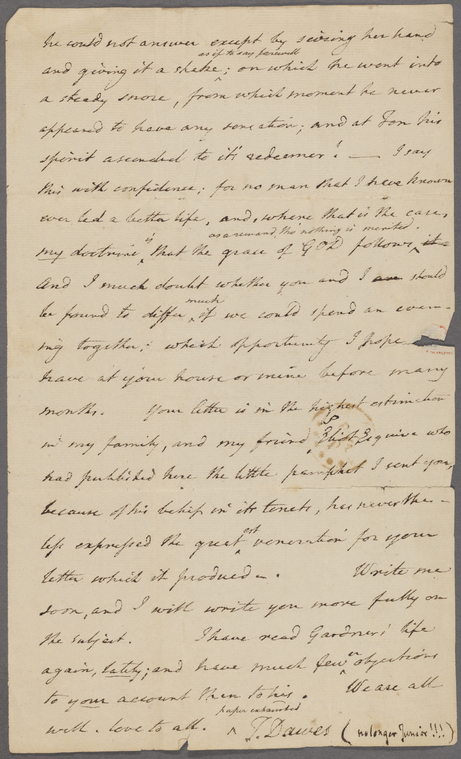 he could not answer except by seizing her hand
as if to say farewell
and giving it a shake; on which he went into
a steady snore, from which moment he never
appeared to have any sensation; and at 7 am his
spirit ascended to it's redeemer! — I say
this with confidence; for no man that I have known
ever led a better life, and, where that is the case,
as a reward, tho' nothing is merited.
my doctrine is, that the grace of GOD follows it
And I much doubt whether you and I are should
be found to differ much, if we could spend an even-
ing together: which opportunity I hope
have at your house or mine before many
months. Your letter is in the highest estimation
in my family, and my friend S Eliot Esquire who
had published here the little pamphlet I sent you,
because of his belief in its tenets, has neverthe-
less expressed the greatest veneration for your
letter which it produced. Write me
soon, and I will write you more fully on
the subject. I have read Gardners' life
again, lately; and have much fewer objections
to your account than to his. We are all
paper exhausted
well. love to all. T. Dawes (no longer Junior!!!)